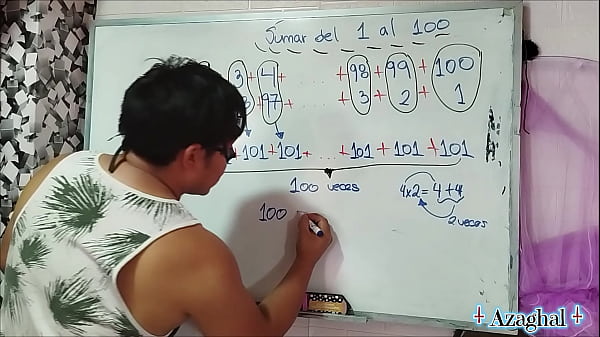 Sumar del 1 al 100
3 + 4 + . . . . +98 + 99 + 100
+97 + . . . . + 3 + 2 + 1
+101+101+ . . . +101 + 101 +101
100 veces
4x2 = 4 + 4
2 veces
100
+ Azaghal +